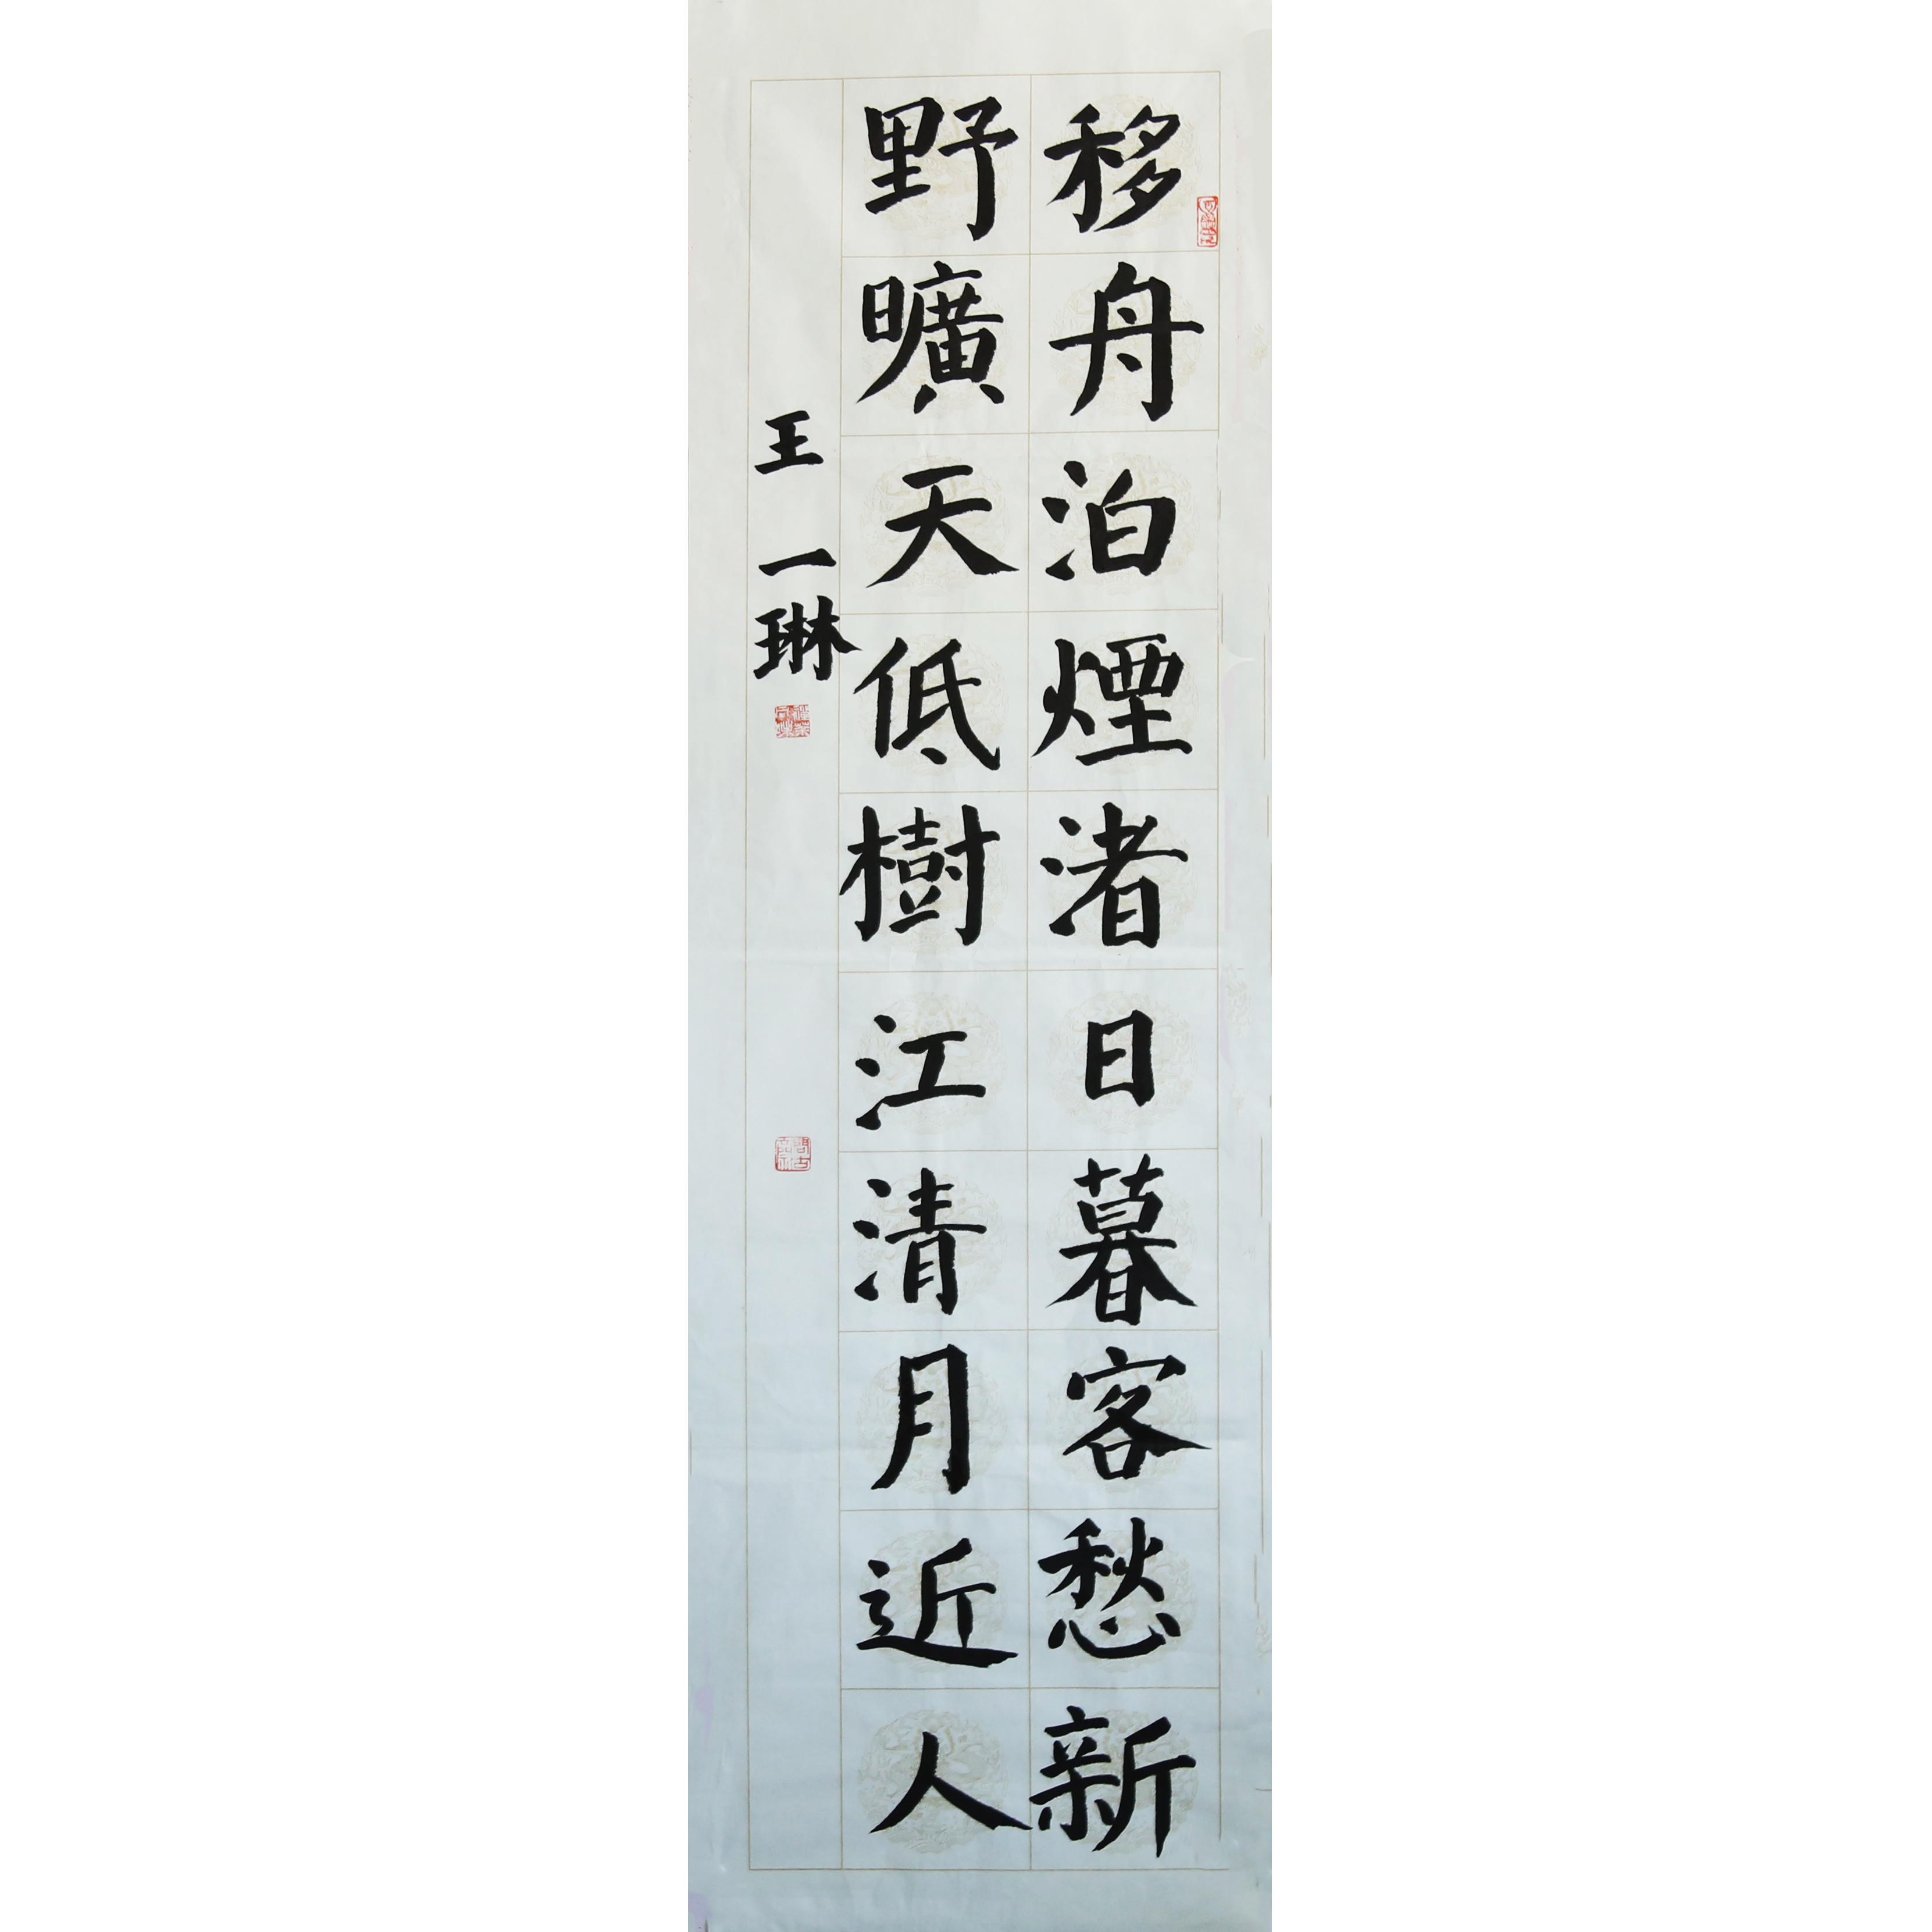 移舟泊煙渚日暮客愁新
野曠天低樹江清月近人
王一琳